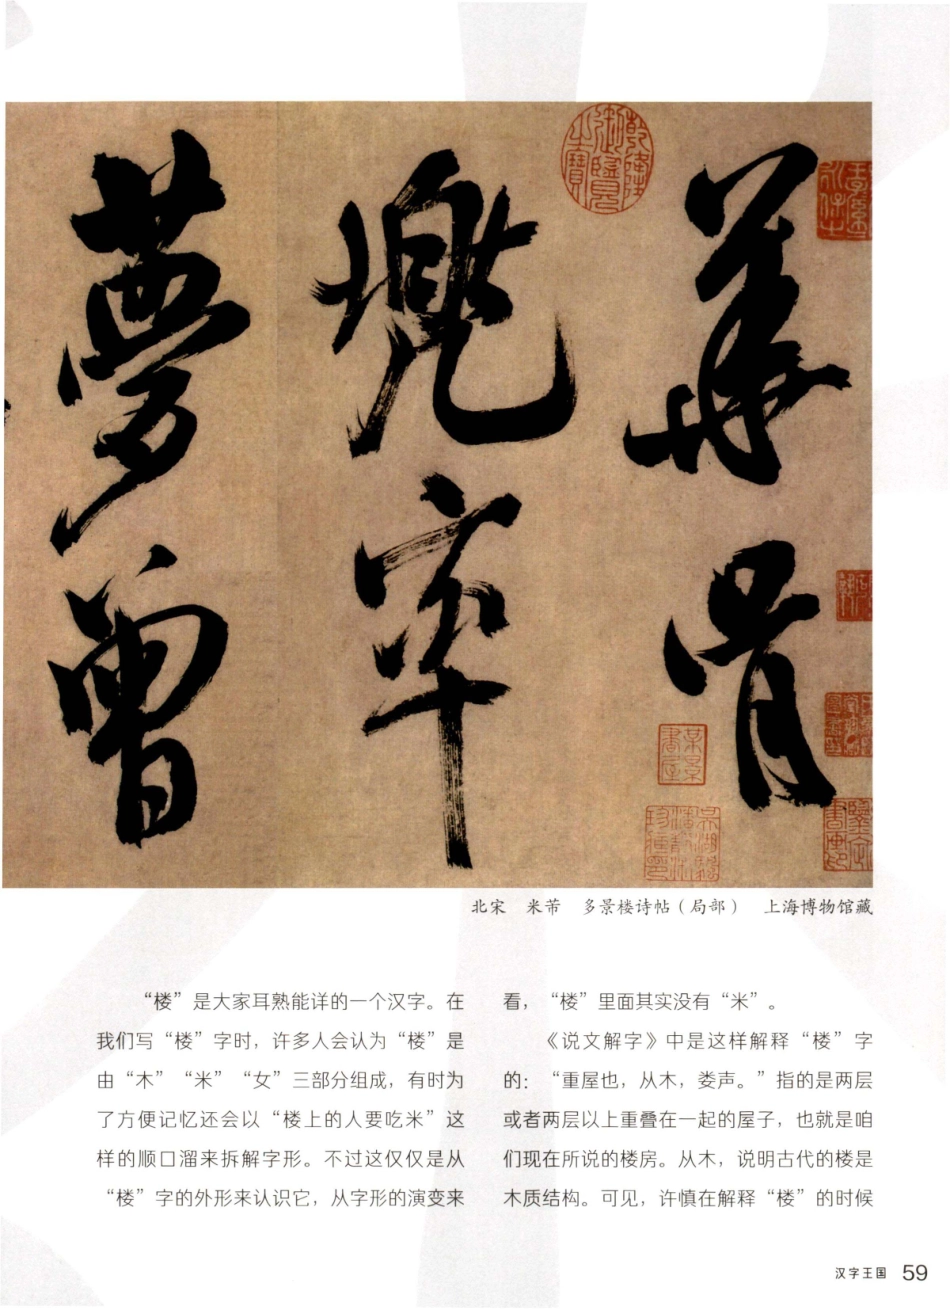 華骨
兜率
夢曾
乾隆御覽之寶
北宋 米芾 多景楼诗帖（局部） 上海博物馆藏
“楼”是大家耳熟能详的一个汉字。在
我们写“楼”字时，许多人会认为“楼”是
由“木”“米”“女”三部分组成，有时为
了方便记忆还会以“楼上的人要吃米”这
样的顺口溜来拆解字形。不过这仅仅是从
“楼”字的外形来认识它，从字形的演变来
看，“楼”里面其实没有“米”。
《说文解字》中是这样解释“楼”字
的：“重屋也，从木，娄声。”指的是两层
或者两层以上重叠在一起的屋子，也就是咱
们现在所说的楼房。从木，说明古代的楼是
木质结构。可见，许慎在解释“楼”的时候
汉字王国 59